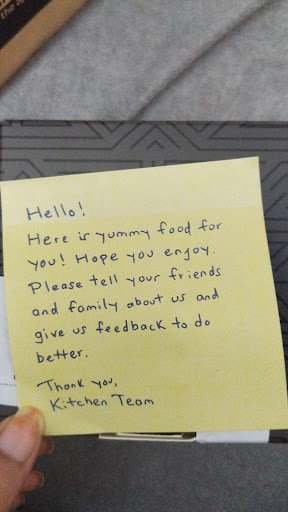 Hello!
Here is yummy food for
you! Hope you enjoy.
Please tell your friends
and family about us and
give us feedback to do
better.
Thank you,
Kitchen Team